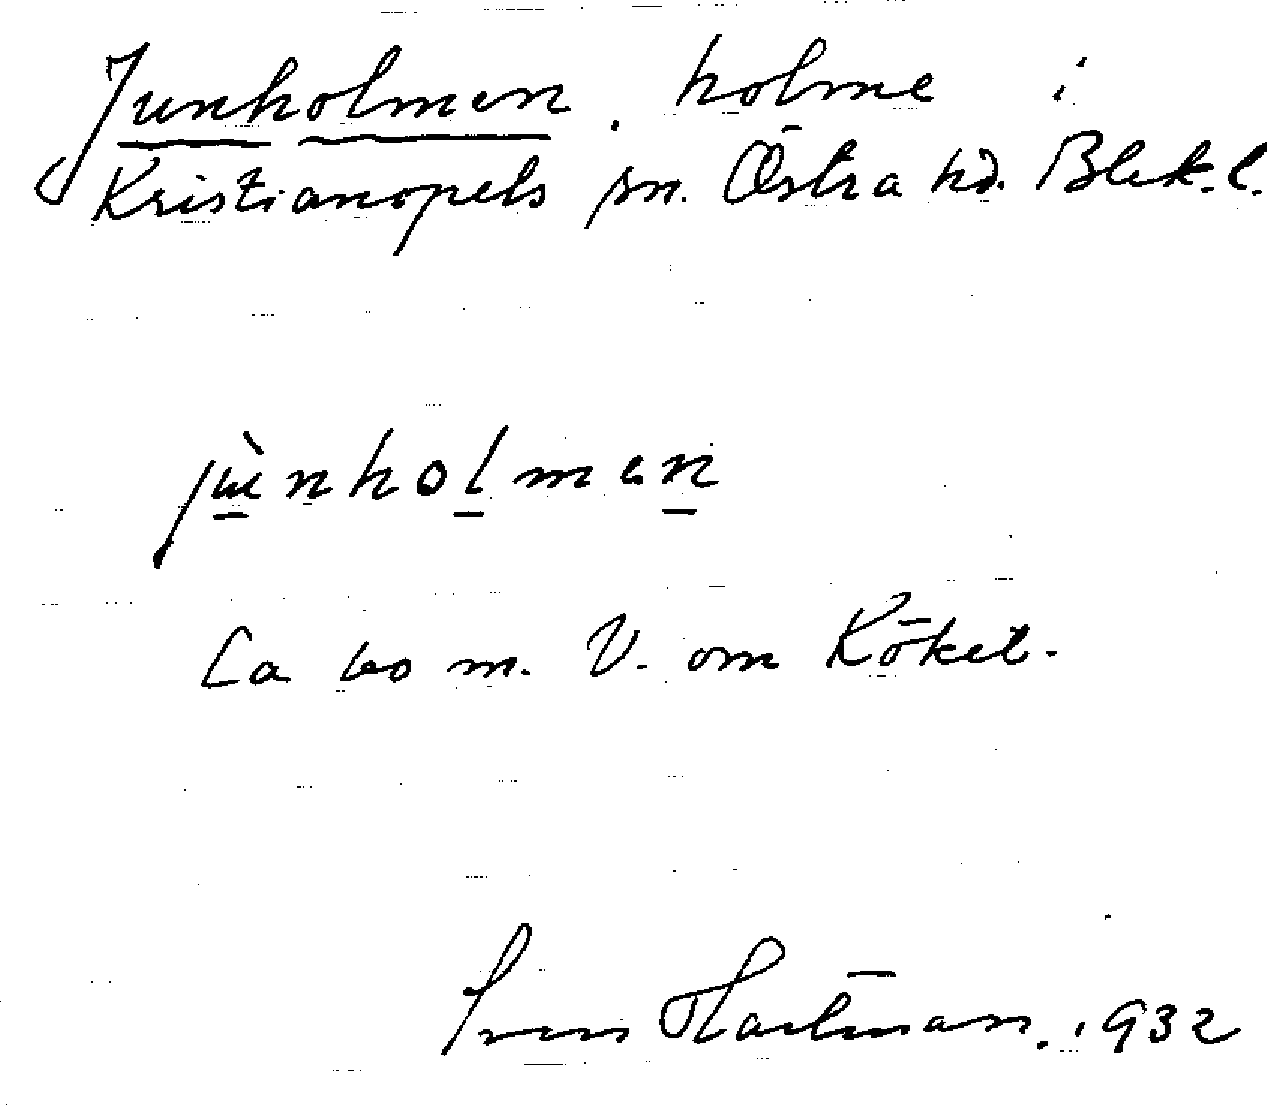 Junholmen. holme i
Kristianopels sn. Östra hd. Blek. l.
jùnholmen
Ca 60 m. V. om Röket.
Sven Hartman. 1932